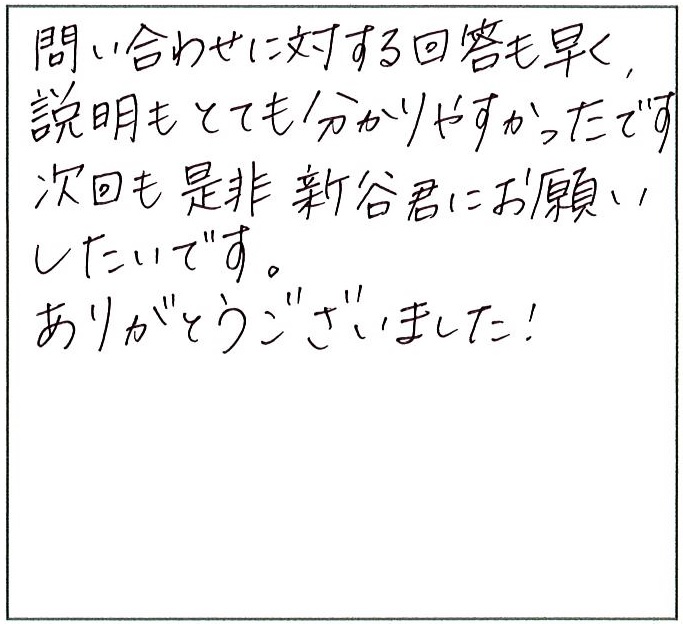 問い合わせに対する回答も早く,
説明もとても分かりやすかったです
次回も是非新谷君にお願い
したいです。
ありがとうございました!